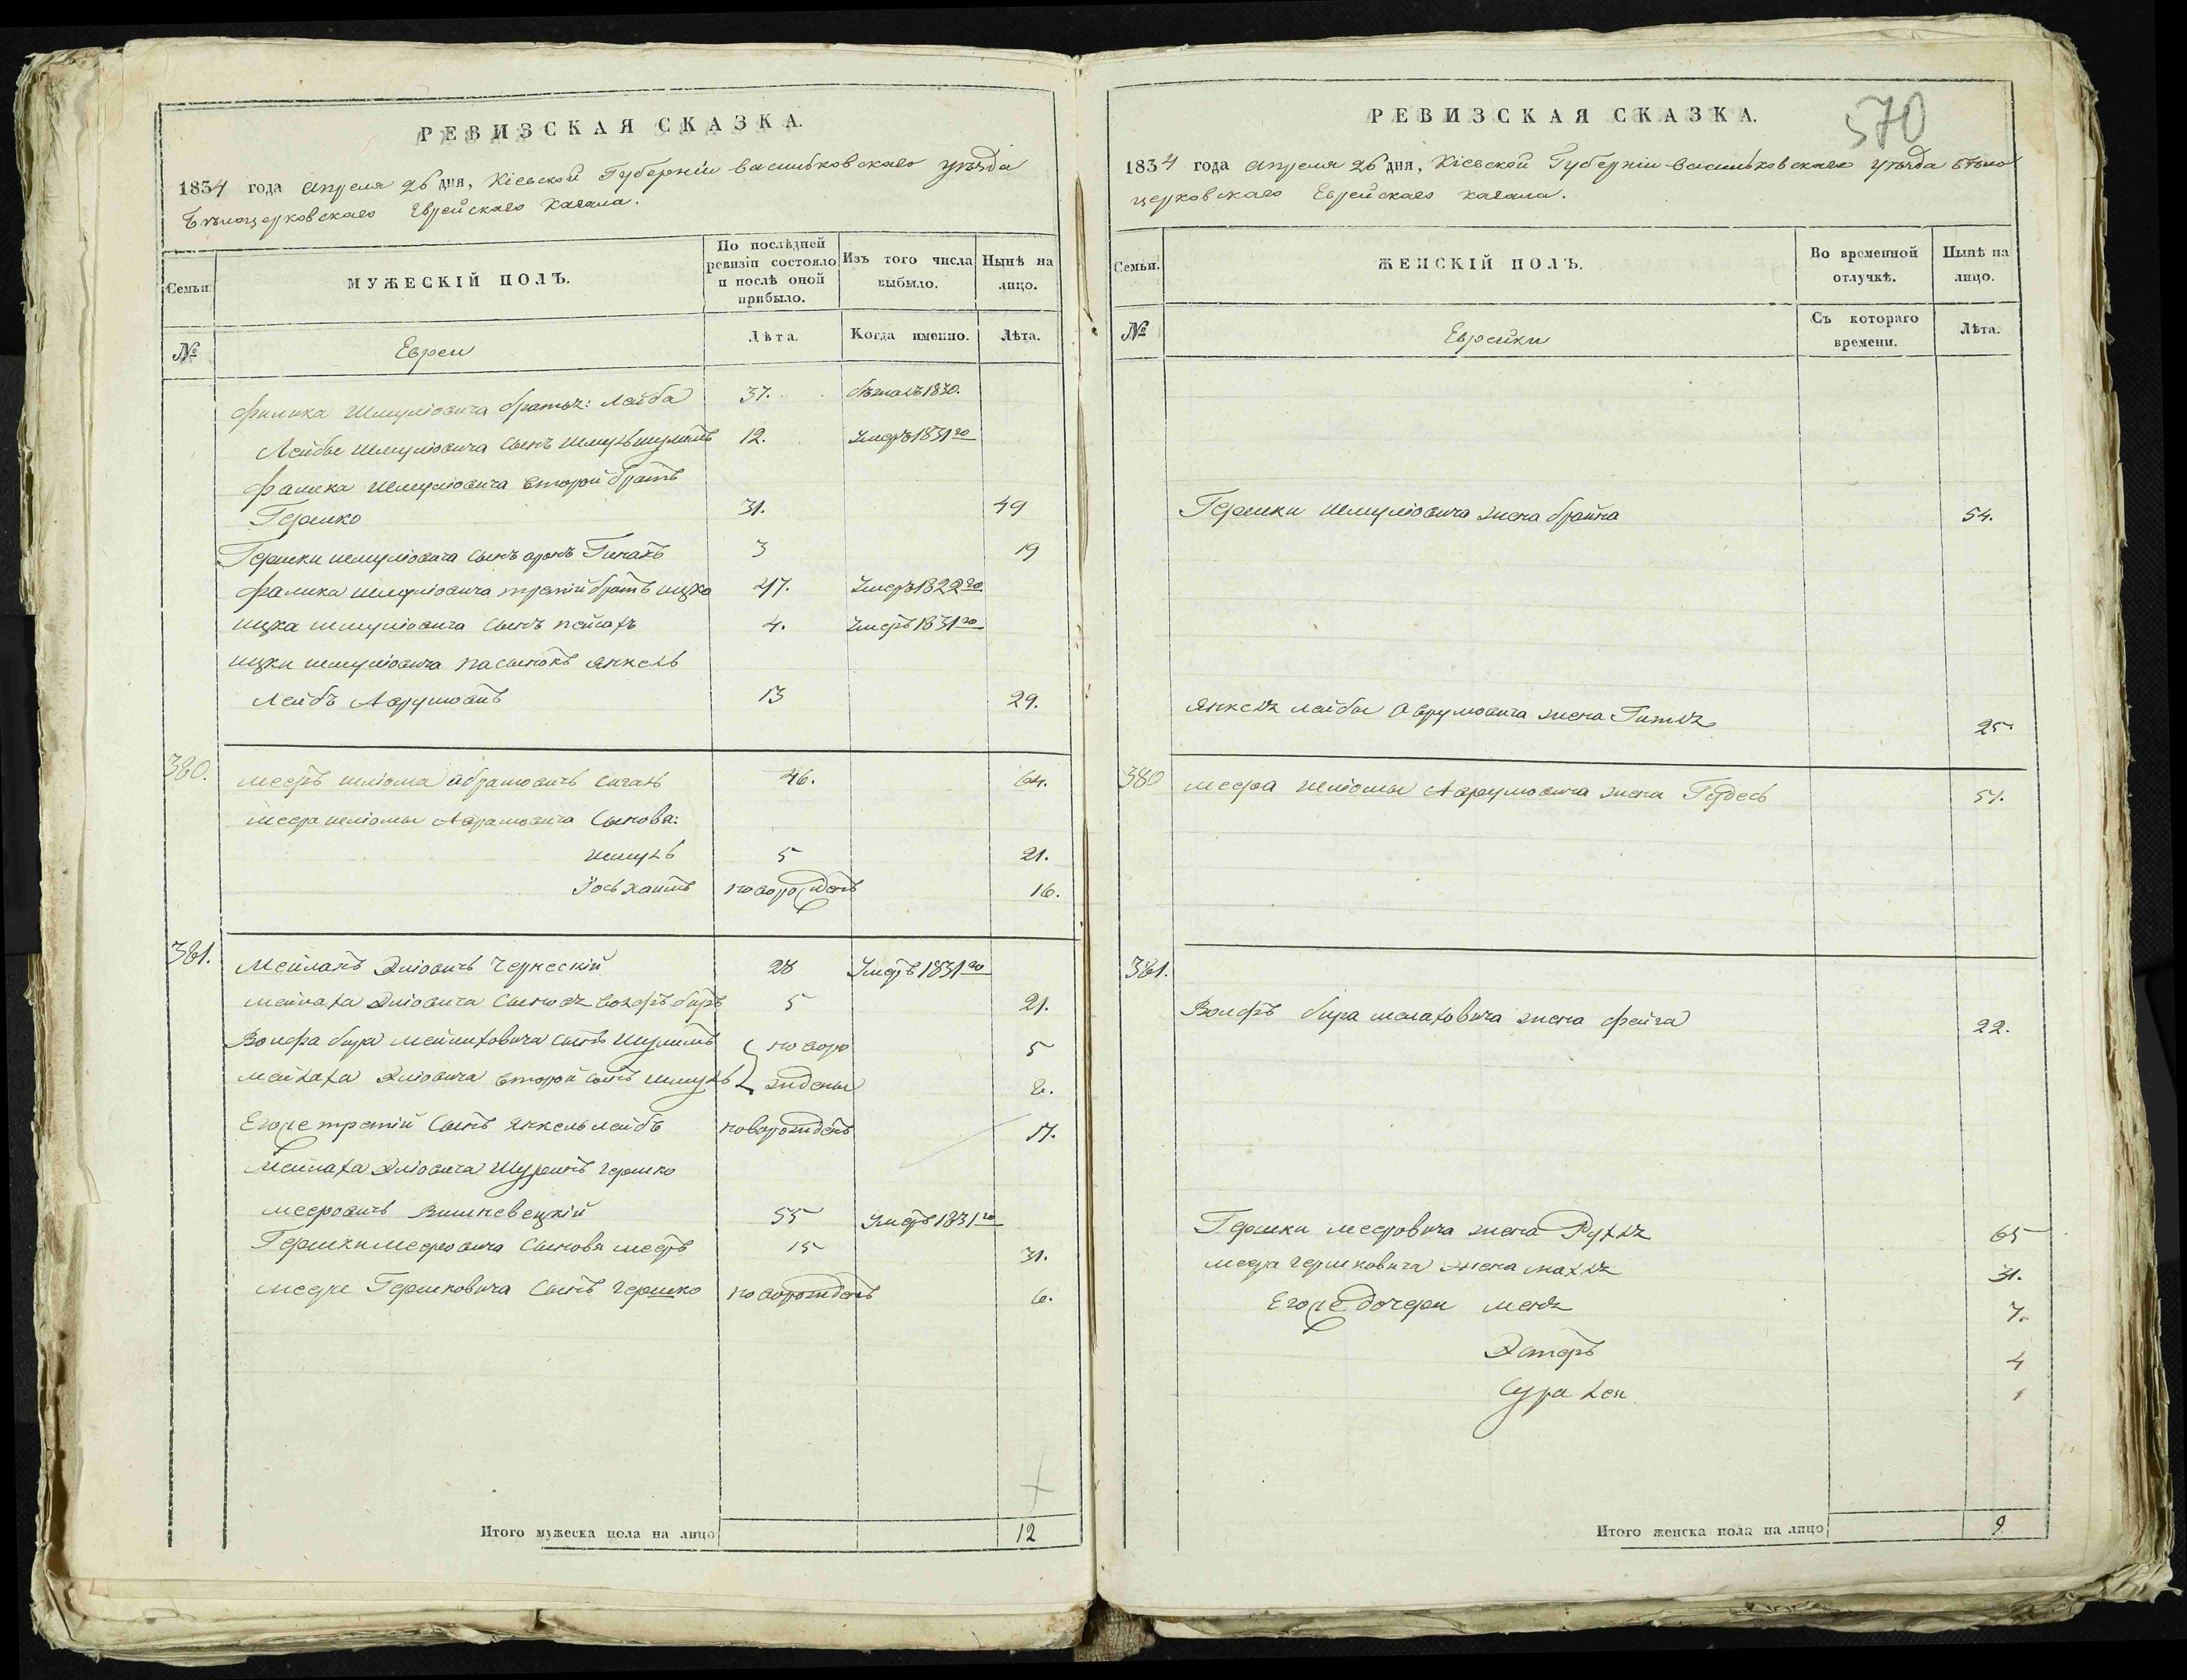 РЕВИЗСКАЯ СКАЗКА.
1834 года апреля 26 дня, Кіевской Губерніи Васильковскаго уезда
Белоцерковскаго Еврейскаго Кагала.
Семьи.
МУЖЕСКІЙ ПОЛЪ.
По послѣдней ревизіи состояло и послѣ оной прибыло.
Изъ того числа выбыло.
Нынѣ на лицо.
№
Евреи
Лѣта.
Когда именно.
Лѣта.
Фалика Шмуліовича братья: Лейба 37. бежалъ 1830.
Лейбы Шмуліовича сынъ Шмуль 12. Умеръ 1831го
Фалика Шмуліовича второй братъ
Гершко 31. 49
Гершки Шмуліовича сынъ аронъ 3 19
Фалика Шмуліовича третій братъ ицко 47. Умеръ 1822го
ицка Шмуліовича сынъ пейсахъ 4. Умеръ 1831го
ицки Шмуліовича пасынокъ Янкель
Лейбъ Аврумовъ 13 29.
380. мееръ шліома Абрамовичъ 46. 64.
меера шліомы Аврамовича сынова:
шмуль 5 21.
Іось хаимъ новорожденъ 16.
381. Мейлахъ Эліовичъ Черкескій 28 Умеръ 1831го
мейлаха Эліовича сыновья вольфъ беръ 5 21.
Вольфа бера Мейлаховича сынъ Шулимъ новоро 5
мейлаха Эліовича второй сынъ шмуль жденые 8.
Егоже третій сынъ Янкель лейбъ новорожденъ 17.
Мейлаха Эліовича Шуринъ гершко
мееровичъ Вишневецкій 55 Умеръ 1831го
Гершки мееровича сыновя мееръ 15 31.
меера Гершковича сынъ гершко новорожденъ 6.
Итого мужеска пола на лицо 12
РЕВИЗСКАЯ СКАЗКА.
570
1834 года апреля 26 дня, Кіевской Губерніи Васильковскаго уезда Бѣло
церковскаго Еврейскаго кагала.
Семьи.
ЖЕНСКІЙ ПОЛЪ.
Во временной отлучкѣ.
Нынѣ на лицо.
№
Еврейки
Съ котораго времени.
Лѣта.
Гершки Шмуліовича жена брайна 54.
Янкеля лейбы Аврумовича жена Гитля 25.
380 меера шліомы Аврумовича жена Гудесь 51.
381.
Вольфъ бера мелаховича жена фейга 22.
Гершки мееровича жена Рухля 65
меера гершковича жена махля 31.
Егоже дочери меня 7.
Эстеръ 4
Сура лея 1
Итого женска пола на лицо 9